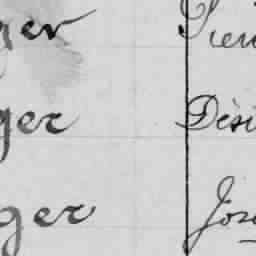 ger Pier
ger Dési
ger Jose